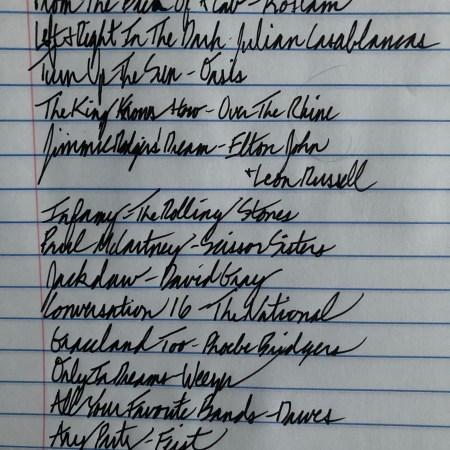 From The Back Of A Cab - Rostam
Left & Right In The Dark - Julian Casablancas
Turn Up The Sun - Oasis
The King Knows How - Over The Rhine
Jimmie Rodgers' Dream - Elton John
& Leon Russell
Infamy - The Rolling Stones
Paul McCartney - Scissor Sisters
Jackdaw - David Gray
Conversation 16 - The National
Graceland Too - Phoebe Bridgers
Only In Dreams - Weezer
All Your Favorite Bands - Dawes
Any Party - Feist